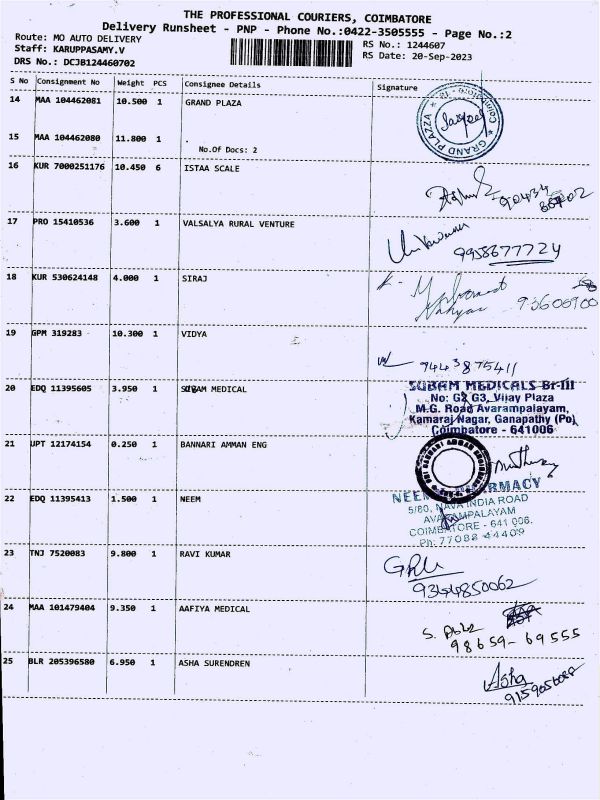 THE PROFESSIONAL COURIERS, COIMBATORE
Delivery Runsheet - PNP - Phone No.:0422-3505555 - Page No.:2
Route: MO AUTO DELIVERY
Staff: KARUPPASAMY.V
DRS No.: DCJB124460702
RS No.: 1244607
RS Date: 20-Sep-2023
S No Consignment No Weight PCS Consignee Details Signature
14 MAA 104462081 10.500 1 GRAND PLAZA
GRAND PLAZZA
15 MAA 104462080 11.800 1 .
No.Of Docs: 2
16 KUR 7000251176 10.450 6 ISTAA SCALE
17 PRO 15410536 3.600 1 VALSALYA RURAL VENTURE
9958677724
18 KUR 530624148 4.000 1 SIRAJ
19 GPM 319283 10.300 1 VIDYA
9443875411
20 EDQ 11395605 3.950 1 SUBAM MEDICAL
SUBAM MEDICALS Br-III
No: G2 G3, Vijay Plaza
M.G. Road Avarampalayam,
Kamaraj Nagar, Ganapathy (Po)
Coimbatore - 641006
21 UPT 12174154 0.250 1 BANNARI AMMAN ENG
22 EDQ 11395413 1.500 1 NEEM
5/80, NAVA INDIA ROAD
AVARAMPALAYAM
COIMBATORE - 641 006.
Ph: 77088 44409
23 TNJ 7520083 9.800 1 RAVI KUMAR
9344850062
24 MAA 101479404 9.350 1 AAFIYA MEDICAL
98659-69555
25 BLR 205396580 6.950 1 ASHA SURENDREN
Asha